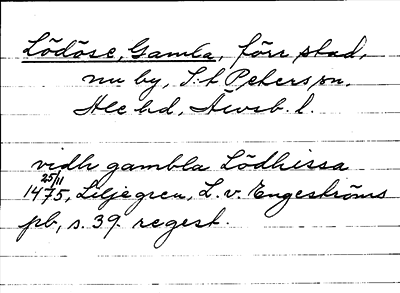 Lödöse, Gamla, förr stad,
nu by, S:t Peters sn.
Ale hd, Älvsb. l.
vidh gambla Lödhissa
25/11
1475, Liljegren, L. v. Engeströms
pb, s. 39. regest.